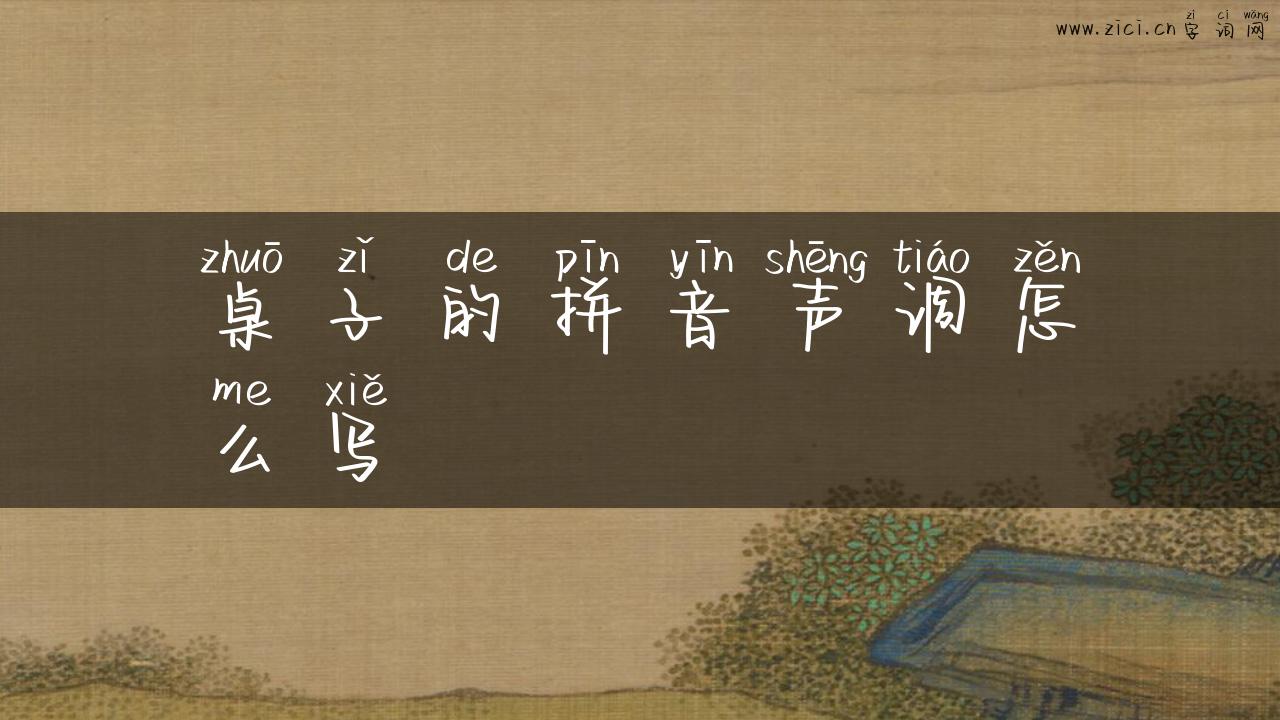 zì cí wǎng
www.zici.cn 字词网
zhuō zǐ de pīn yīn shēng tiáo zěn
桌子的拼音声调怎
me xiě
么写